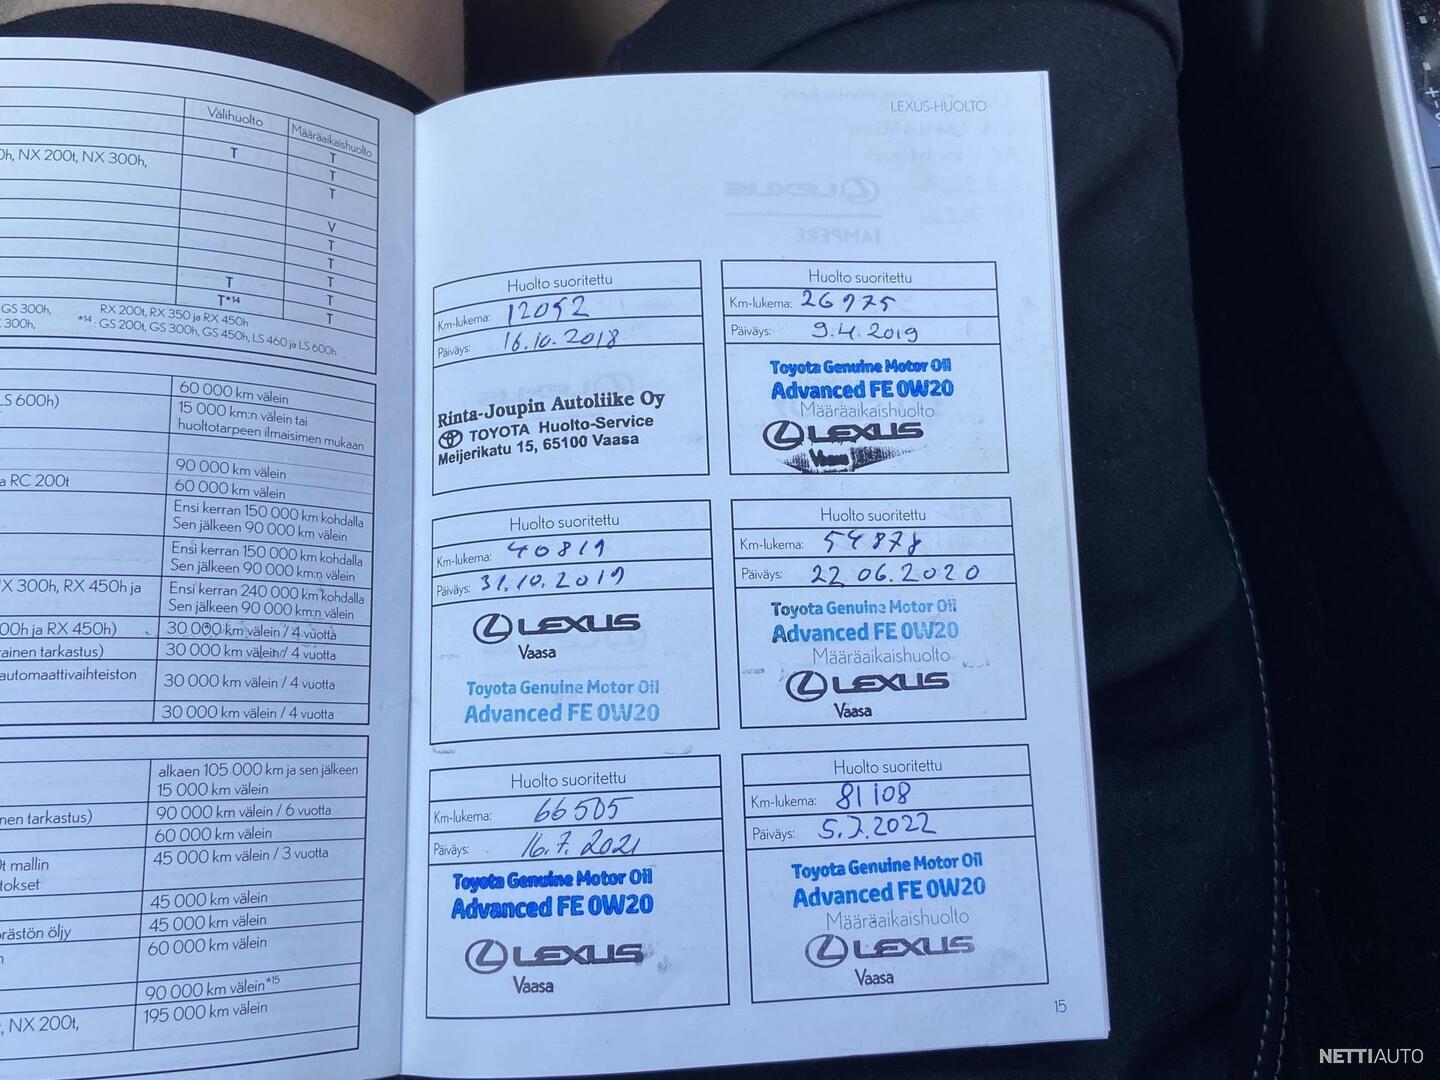 Välihuolto
Määräaikaishuolto
T
T
0h, NX 200t, NX 300h,
T
T
V
T
T
T
T
T*14
T
T
GS 300h,
RX 200t, RX 350 ja RX 450h
300h,
*14: GS 200t, GS 300h, GS 450h, LS 460 ja LS 600h
60 000 km välein
LS 600h)
15 000 km:n välein tai
huoltotarpeen ilmaisimen mukaan
90 000 km välein
a RC 200t
60 000 km välein
Ensi kerran 150 000 km kohdalla
Sen jälkeen 90 000 km välein
Ensi kerran 150 000 km kohdalla
Sen jälkeen 90 000 km:n välein
X 300h, RX 450h ja
Ensi kerran 240 000 km kohdalla
Sen jälkeen 90 000 km:n välein
00h ja RX 450h)
30 000 km välein / 4 vuotta
rainen tarkastus)
30 000 km välein / 4 vuotta
automaattivaihteiston
30 000 km välein / 4 vuotta
30 000 km välein / 4 vuotta
alkaen 105 000 km ja sen jälkeen
15 000 km välein
nen tarkastus)
90 000 km välein / 6 vuotta
60 000 km välein
0t mallin
45 000 km välein / 3 vuotta
tokset
45 000 km välein
45 000 km välein
rästön öljy
60 000 km välein
90 000 km välein*15
, NX 200t,
195 000 km välein
LEXUS-HUOLTO
Huolto suoritettu
Km-lukema: 12052
Päiväys: 16.10.2018
Rinta-Joupin Autoliike Oy
TOYOTA Huolto-Service
Meijerikatu 15, 65100 Vaasa
Huolto suoritettu
Km-lukema: 26975
Päiväys: 9.4.2019
Toyota Genuine Motor Oil
Advanced FE 0W20
Määräaikaishuolto
LEXUS
Vaasa
Huolto suoritettu
Km-lukema: 40819
Päiväys: 31.10.2019
LEXUS
Vaasa
Toyota Genuine Motor Oil
Advanced FE 0W20
Huolto suoritettu
Km-lukema: 54878
Päiväys: 22 06.2020
Toyota Genuine Motor Oil
Advanced FE 0W20
Määräaikaishuolto
LEXUS
Vaasa
Huolto suoritettu
Km-lukema: 66505
Päiväys: 16.7.2021
Toyota Genuine Motor Oil
Advanced FE 0W20
LEXUS
Vaasa
Huolto suoritettu
Km-lukema: 81108
Päiväys: 5.7.2022
Toyota Genuine Motor Oil
Advanced FE 0W20
Määräaikaishuolto
LEXUS
Vaasa
15
NETTIAUTO